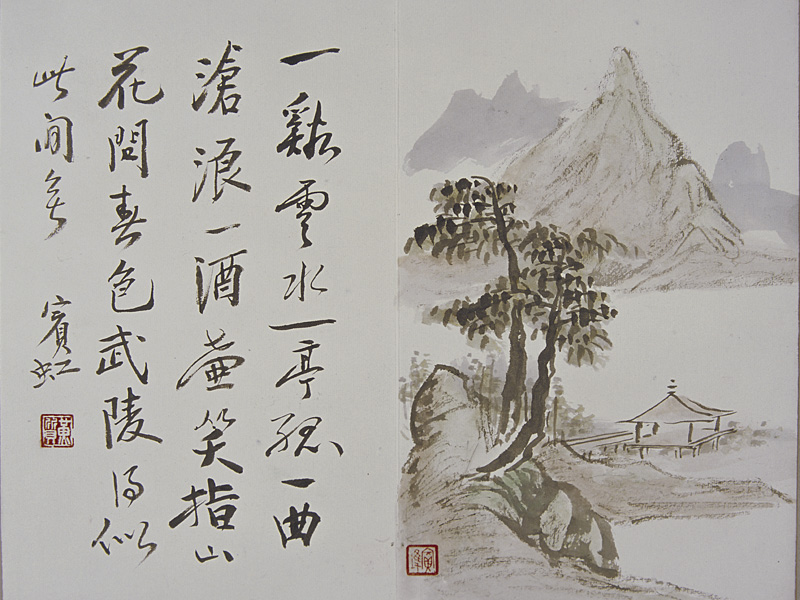 一谿雲水一亭孤一曲
滄浪一酒壺笑指山
花問春色武陵得似
此間無
賓虹